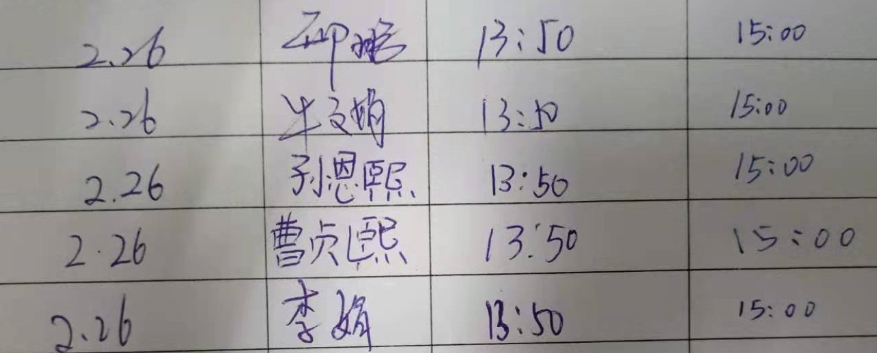 2.26 13:50 15:00
2.26 牛文娟 13:50 15:00
2.26 孙恩熙 13:50 15:00
2.26 曹贞熙 13:50 15:00
2.26 李娟 13:50 15:00